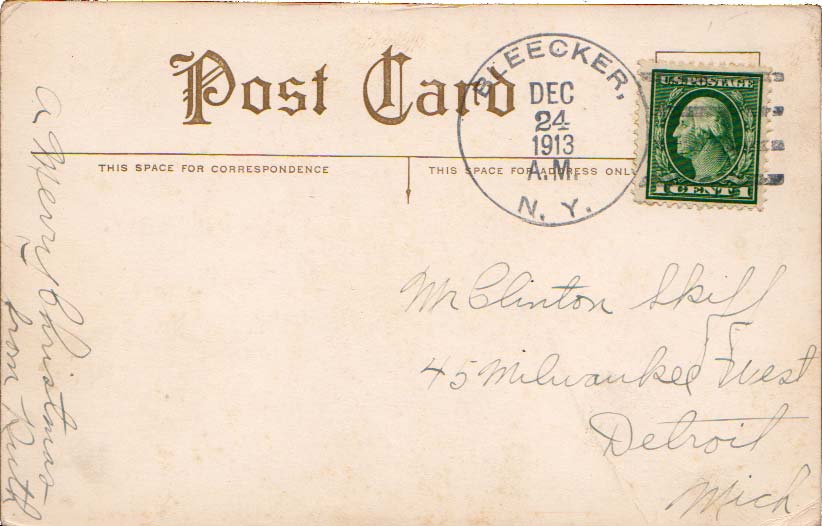 Post Card
BLEECKER,
DEC
24
1913
A.M.
N. Y.
U.S. POSTAGE
1 CENT 1
THIS SPACE FOR CORRESPONDENCE
THIS SPACE FOR ADDRESS ONLY
A Merry Christmas
from Ruth
Mr Clinton Skiff
45 Milwaukee West
Detroit
Mich